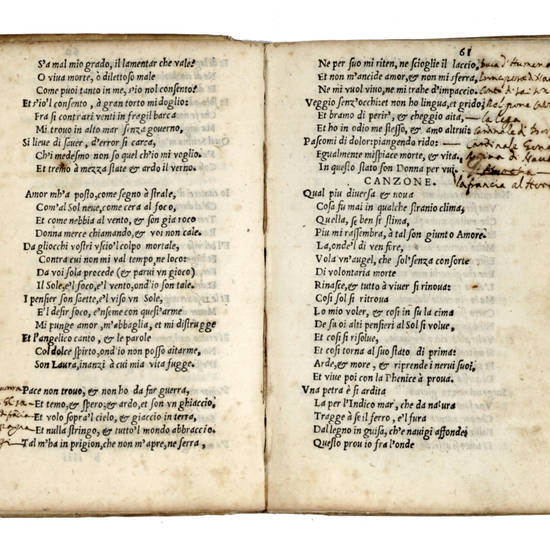 S'a mal mio grado, il lamentar che vale?
O viva morte, ò dilettoso male
Come puoi tanto in me, s'io nol consento?
Et s'io'l consento, à gran torto mi doglio:
Fra sì contrari venti in fregil barca
Mi trouo in alto mar senza gouerno,
Si lieue di sauer, d'error si carca,
Ch'i medesmo non so quel ch'io mi voglio.
Et tremo à mezza state & ardo il verno.
Amor m'ha posto, come segno à strale,
Com'al Sol neue, come cera al foco,
Et come nebbia al vento, & son gia roco
Donna merce chiamando, & voi non cale.
Da gliocchi vostri vscio'l colpo mortale,
Contra cui non mi val tempo, ne loco:
Da voi sola procede (& parui vn gioco)
Il Sole, e'l foco, e'l vento, ond'io son tale.
I pensier son saette, e'l viso vn Sole,
E'l desir foco, e'nseme con quest'arme
Mi punge amor, m'abbaglia, et mi distrugge
Et l'angelico canto, & le parole
Col dolce spirto, ond'io non posso aitarme,
Son Laura, inanzi à cui mia vita fugge.
Pace non trouo, & non ho da far guerra,
Et temo, & spero, & ardo, et son vn ghiaccio,
Et volo sopra'l cielo, & giaccio in terra,
Et nulla stringo, & tutto'l mondo abbraccio.
Tal m'ha in prigion, che non m'apre, ne serra,
61
Ne per suo mi riten, ne scioglie il laccio,
Et non m'ancide amor, & non mi sferra,
Ne mi vuol viuo, ne mi trahe d'impaccio.
Veggio senz'occhi: et non ho lingua, et grido:
Et bramo di perir', & cheggio aita,
Et ho in odio me stesso, & amo altrui:
Pascomi di dolor: piangendo rido:
Egualmente mi spiace morte, & vita,
In questo stato son Donna per vui.
CANZONE.
Qual piu diuersa & noua
Cosa fu mai in qualche stranio clima,
Quella, se ben si stima,
Piu mi rassembra, à tal son giunto Amore.
La, ond'el di ven fore,
Vola vn'augel, che sol'senza consorte
Di volontaria morte
Rinasce, & tutto à viuer si rinoua:
Cosi sol si ritroua
Lo mio voler, & cosi in su la cima
De suoi alti pensieri al Sol si volue,
Et cosi si risolue,
Et cosi torna al suo stato di prima:
Arde, & more, & riprende i nerui suoi,
Et viue poi con la Phenice à proua.
Vna petra è si ardita
La per l'Indico mar, che da natura
Tragge à se il ferro, e'l fura
Dal legno in guisa, ch'e nauigi affonde:
Questo prouo io fra l'onde